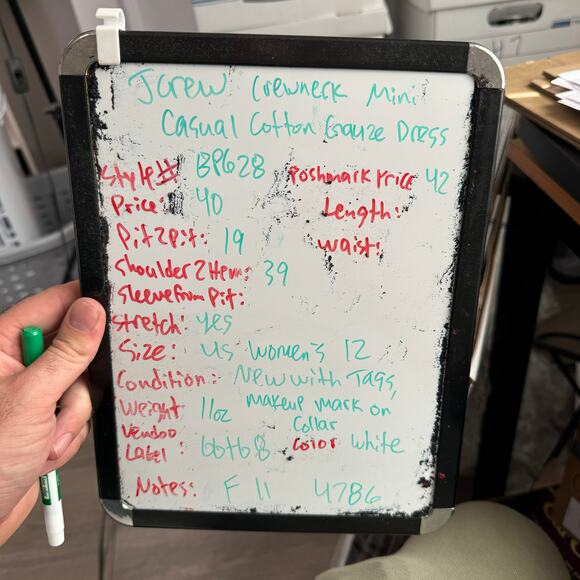 Jcrew Crewneck Mini
Casual Cotton Gauze Dress
Style# BP628 Poshmark Price 42
Price: 40 Length:
Pit2Pit: 19 waist:
Shoulder2Hem: 39
Sleeve from Pit:
Stretch: yes
Size: US Women's 12
Condition: New with Tags,
makeup mark on
collar
Weight 11oz
Vendoo
Label: color white
Notes: F 11 4786